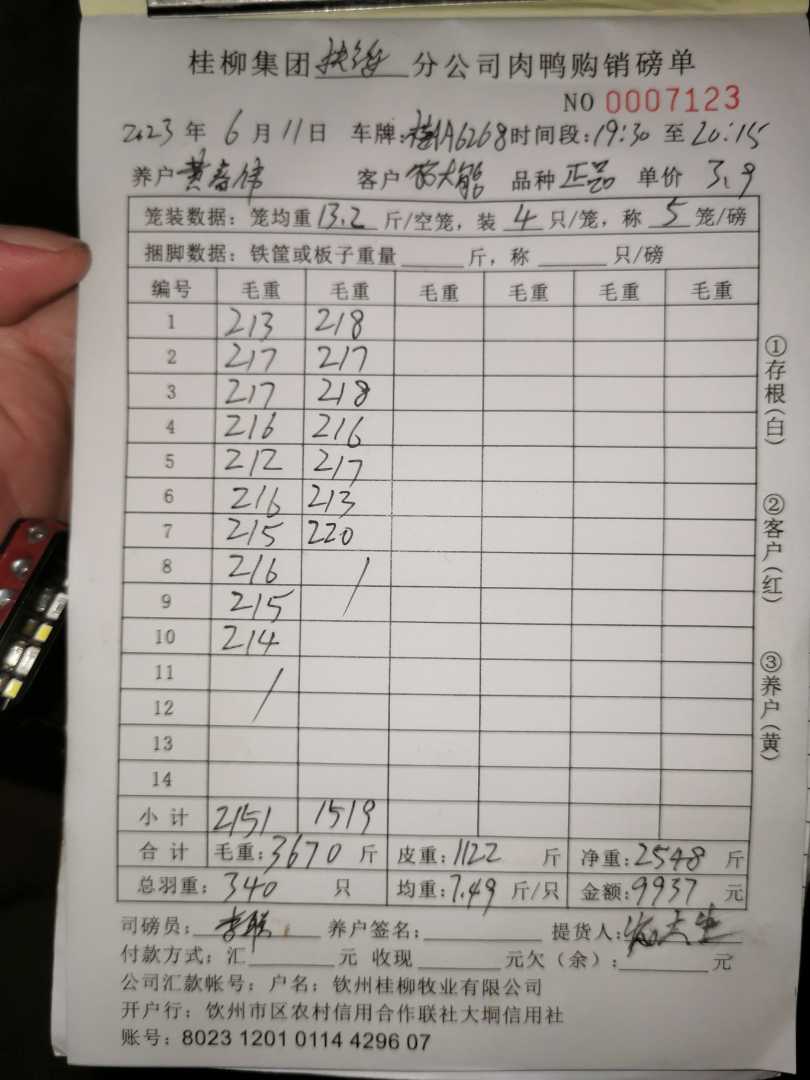 桂柳集团扶绥分公司肉鸭购销磅单
NO 0007123
2023年6月11日 车牌:桂AA6268 时间段:19:30至20:15
养户黄春伟 客户 品种正品 单价3.9
笼装数据:笼均重13.2斤/空笼,装4只/笼,称5笼/磅
捆脚数据:铁筐或板子重量____斤,称____只/磅
编号 毛重 毛重 毛重 毛重 毛重 毛重
1 213 218
2 217 217
3 217 218
4 216 216
5 212 217
6 216 213
7 215 220
8 216 /
9 215
10 214
11 /
12
13
14
小计 2151 1519
合计 毛重:3670斤 皮重:1122斤 净重:2548斤
总羽重:340只 均重:7.49斤/只 金额:9937元
司磅员: 养户签名:____ 提货人:
付款方式:汇____元 收现____元欠(余):____元
公司汇款帐号:户名:钦州桂柳牧业有限公司
开户行:钦州市区农村信用合作联社大垌信用社
账号:8023 1201 0114 4296 07
①存根(白)
②客户(红)
③养户(黄)